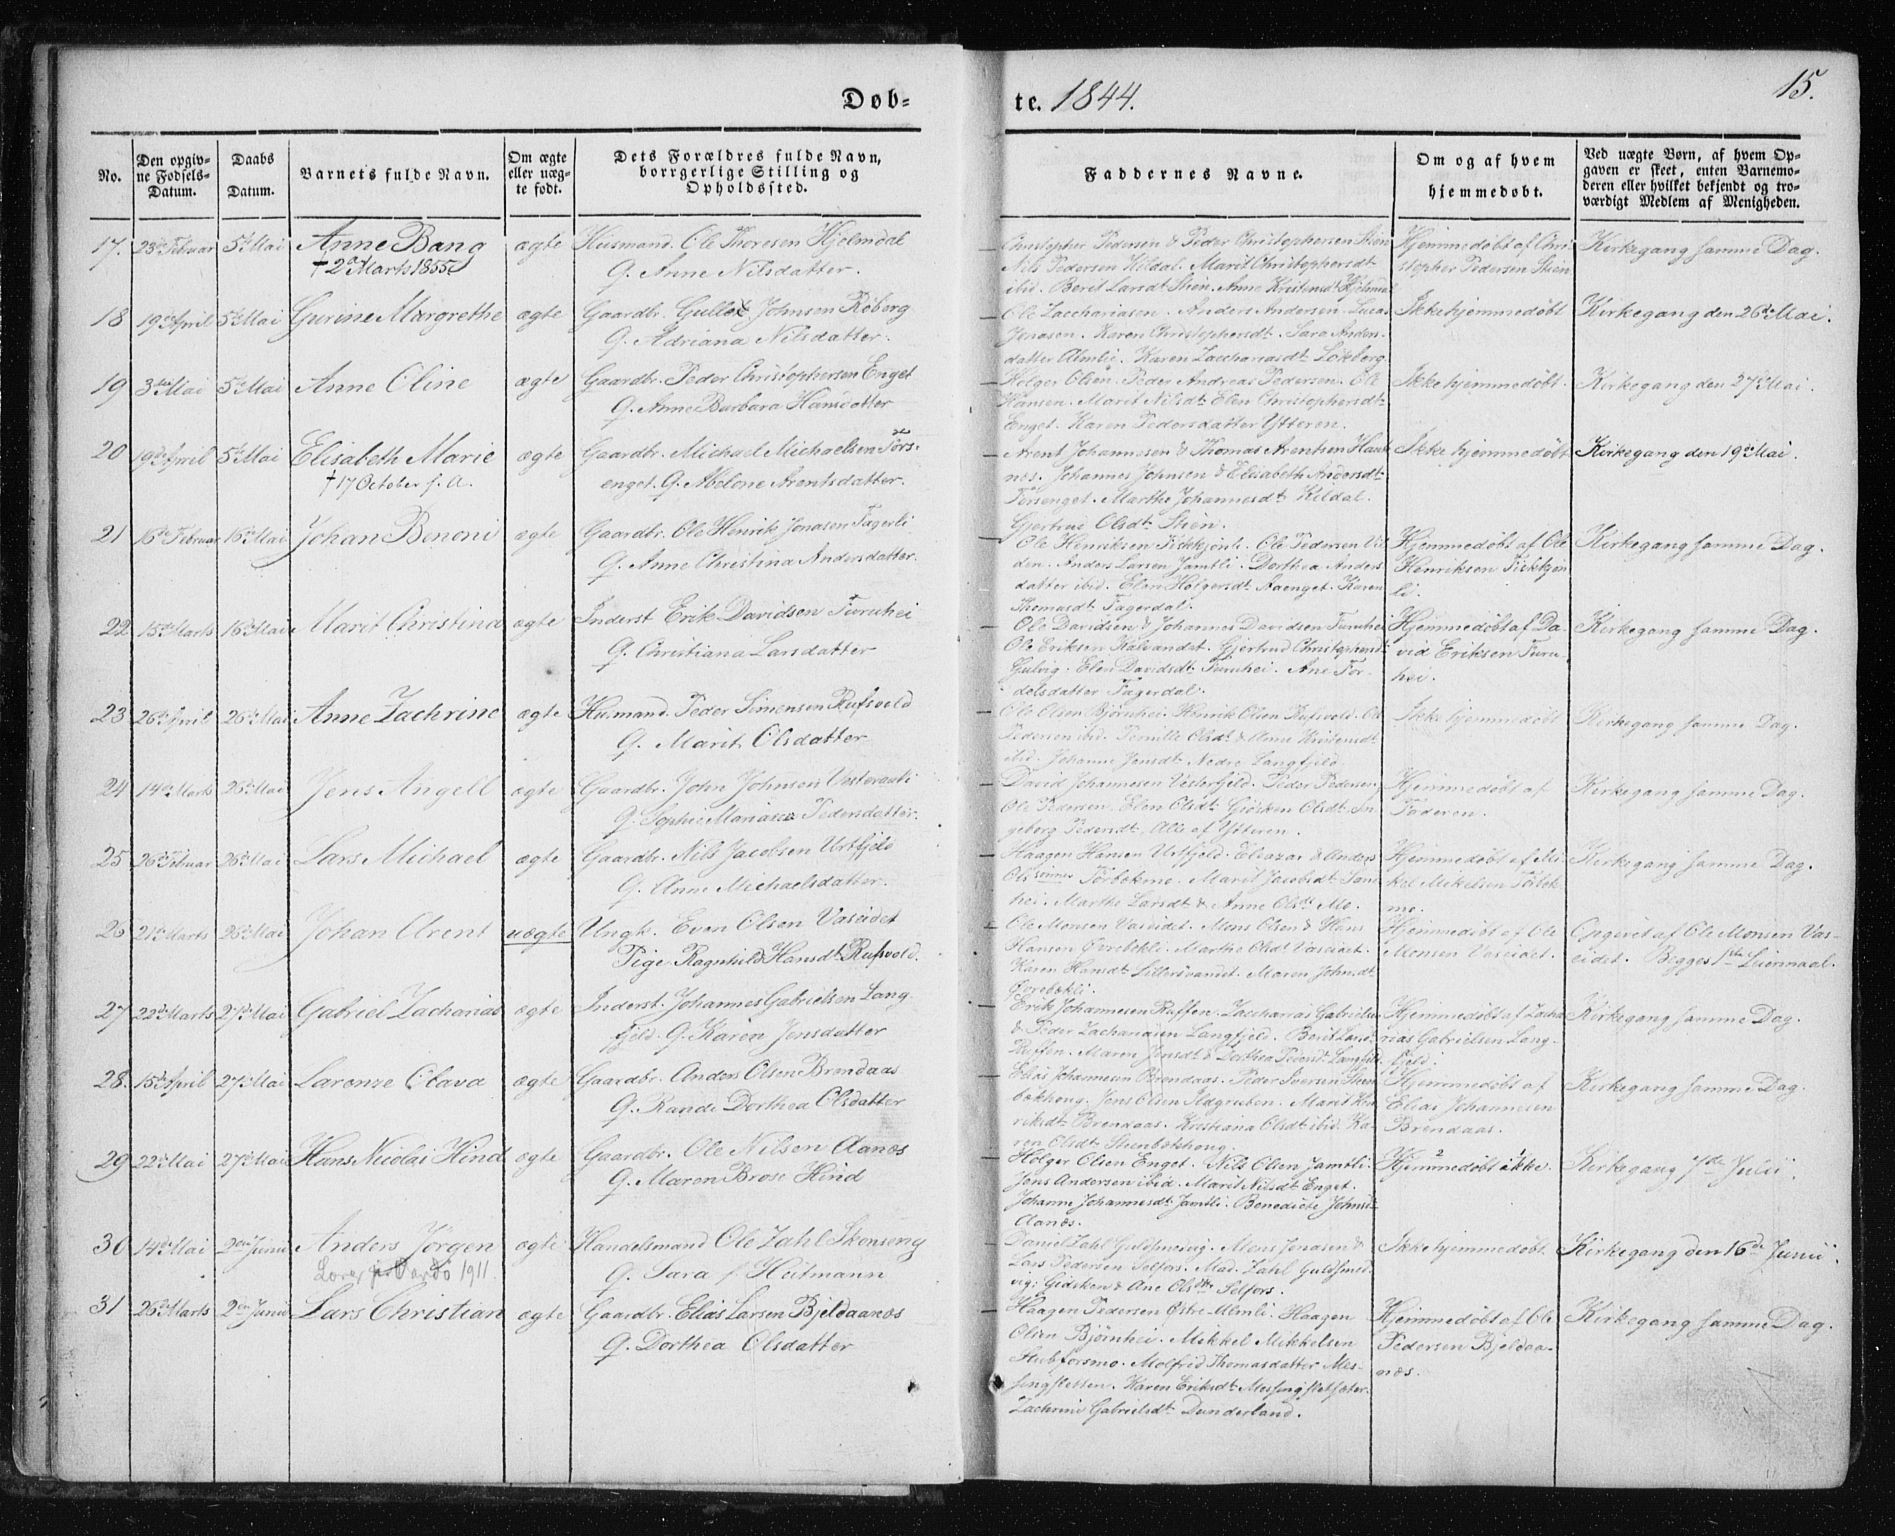 Døb-
te. 1844.
15.
No.
Den opgiv-
ne Fødsels-
Datum.
Daabs
Datum.
Barnets fulde Navn.
Om ægte
eller uæg-
te født.
Dets Forældres fulde Navn,
borrgerlige Stilling og
Opholdssted.
Faddernes Navne.
Om og af hvem
hjemmedøbt.
Ved uægte Børn, af hvem Op-
gaven er skeet, enten Barnemo-
deren eller hvilket bekjendt og tro-
værdigt Medlem af Menigheden.
17. 23de Februar 5te Mai Anne Bang ægte Huusmand. Ole Thoresen Hjelmdal
† 2den Marts 1855
Q. Anne Nilsdatter.
Christopher Pedersen & Peder Christophersen Stien
Nils Pedersen Kildal. Marit Christophersdt
ibid. Berit Larsdt Stien. Anne Kristensdt Hjelmdal
Hjemmedøbt af Chri-
stopher Pedersen Stien
Kirkegang samme Dag.
18 19de April 5te Mai Gurine Margrethe ægte Gaardbr. Johnsen Røberg
Q. Adriana Nilsdatter.
Ole Zacchariasen. Anders Andersen. Lucas
Jonasen. Karen Christophersdt. Sara Anders-
datter Almlie. Karen Zacchariasdt
Ikke hjemmedøbt
Kirkegang den 26de Mai.
19 3die Mai 5te Mai Anne Oline ægte Gaardbr. Peder Christophersen Enget
Q. Anne Barbara Hansdatter
Holger Olsen. Peder Andreas Pedersen. Ole
Hansen. Marit Nilsdt. Elen Christophersdt
Enget. Karen Pedersdatter Ytteren.
Ikke hjemmedøbt.
Kirkegang den 27de Mai.
20 19de April 5te Mai Elisabeth Marie ægte Gaardbr. Michael Michaelsen Førs-
† 17 October s. A.
enget. Q. Abelone Arentsdatter.
Arent Johannesen & Thomas Arentsen
Johannes Johnsen & Elisabeth Andersdt
Førsenget. Marthe Johannesdt Kildal.
Gjertrud Olsdt Stien.
Ikke hjemmedøbt
Kirkegang den 19de Mai.
21 16de Februar 16de Mai Johan Benoni ægte Gaardbr. Ole Henrik Jonasen Fagerli
Q. Anne Christina Andersdatter.
Ole Henriksen. Ole Pedersen
Anders Larsen Jamtli. Dorthea Anders
datter ibid. Elen Holgersdt Aaenget. Karen
Thomasdt Fagerdal.
Hjemmedøbt af Ole
Henriksen
Kirkegang samme Dag.
22 15de Marts 16de Mai Marit Christina ægte Inderst Erik Davidsen Furuhei
Q. Christiana Larsdatter
Ole Davidsen & Johannes Davidsen Furuhei
Ole Eriksen Kalvandet. Gjertrud Christophersdt
Gulvig. Elen Davidsdt Furuhei. Ane Tor-
delsdatter Fagerdal.
Hjemmedøbt af Da-
vid Eriksen Furu-
hei.
Kirkegang samme Dag.
23 26de April 26de Mai Anne Zachrine ægte Husmand. Peder Simensen Rufsvold
Q. Marit Olsdatter
Ole Olsen Bjørnhei. Henrik Olsen Rufsvold. Ole
Pedersen ibid. Pernille Olsdt & Anne Kristensdt
ibid. Johanne Jensdt Nedre Langfjeld
Ikke hjemmedøbt
Kirkegang samme Dag.
24 14de Marts 26de Mai Jens Angell ægte Gaardbr. John Johnsen
Q. Sophie Mariane Pedersdatter.
David Johannesen Vesterfjeld. Peder Pedersen.
Ole Pedersen. Elen Olsdt. Gidsken Olsdt. In-
geborg Pedersdt. Alle af Ytteren.
Hjemmedøbt af
Faderen.
Kirkegang samme Dag.
25 26de Februar 26de Mai Lars Michael ægte Gaardbr. Nils Jacobsen Urtfjeld
Q. Anne Michaelsdatter.
Haagen Hansen Urtfjeld. Eleazar & Anders
Olssønner. Marit Jacobsdt
Marthe Larsdt & Anne Olsdt Mo.
Hjemmedøbt af Mi-
kal Mikelsen
mo.
Kirkegang samme Dag.
26 21de Marts 26de Mai Johan Arent uægte Ungk. Even Olsen Vaseidet
Pige Ragnhild Hansdt Rufsvold.
Ole Monsen Vaseidet. Mons Olsen & Hans
Hansen Øvrebekli. Marthe Olsdt Vaseidet.
Karen Hansdt Lillervandet. Maren Johnsdt
Øvrebekli.
Hjemmedøbt af Ole
Monsen Vaseidet.
Opgivet af Ole Monsen Vas-
eidet. Begges 1ste Leiermaal.
27 22de Marts 27de Mai Gabriel Zacharias ægte Inderst. Johannes Gabrielsen Lang-
fjeld. Q. Karen Jensdatter
Erik Johannesen Ruffen. Zaccharias Gabrielsen
& Peder Zachariasen Langfjeld. Berit
Ruffen. Maren Jensdt & Dorthea Pedersdt Langfjeld
Hjemmedøbt af Zacha-
rias Gabrielsen Lang-
fjeld.
Kirkegang samme Dag.
28. 15de April 27de Mai Laronze Olava ægte Gaardbr. Anders Olsen Brendaas
Q. Rande Dorthea Olsdatter
Elias Johannesen Brendaas. Peder Iversen Stien-
bekhong. Jens Olsen Ildgruben. Marit Hen-
riksdt Brendaas. Kristiana Olsdt ibid. Ka-
ren Olsdt Stenbekhong.
Hjemmedøbt af
Elias Johannesen
Brendaas.
Kirkegang samme Dag.
29 22de Mai 27de Mai Hans Nicolai Hind ægte Gaardbr. Ole Nilsen Aanes
Q. Maren Brose Hind
Holger Olsen Enget. Nils Olsen Jamtli.
Jens Andersen ibid. Marit Nilsdt Enget.
Johanne Johannesdt Jamtli. Benedicte Johnsdt
Aanæs.
Hjemmedøbt ikke.
Kirkegang 7de Julii.
30 14de Mai 2den Junii Anders Jørgen ægte Handelsmand Ole Zahl Skonseng
1911
Q. Sara f. Heitmann
Daniel Zahl Guldsmedvig. Mons Jonasen &
Lars Pedersen Selfors. Mad. Zahl Guldsmed-
vig. Gidsken & Ane Olsdtr Selfors.
Ikke hjemmedøbt.
Kirkegang den 16de Junii.
31 26de Marts 2den Junii Lars Christian ægte Gaardbr. Elias Larsen Bjeldaanæs
Q. Dorthea Olsdatter
Haagen Pedersen Østre Almli. Haagen
Olsen Bjørnhei. Mikkel Mikkelsen
Stubforsmo. Molfrid Thomasdatter Mes-
singsletten. Karen Eriksdt Messingsletsæter.
Zachrine Gabrielsdt Dunderland.
Hjemmedøbt af Ole
Pedersen Bjeldaa-
næs.
Kirkegang samme Dag.